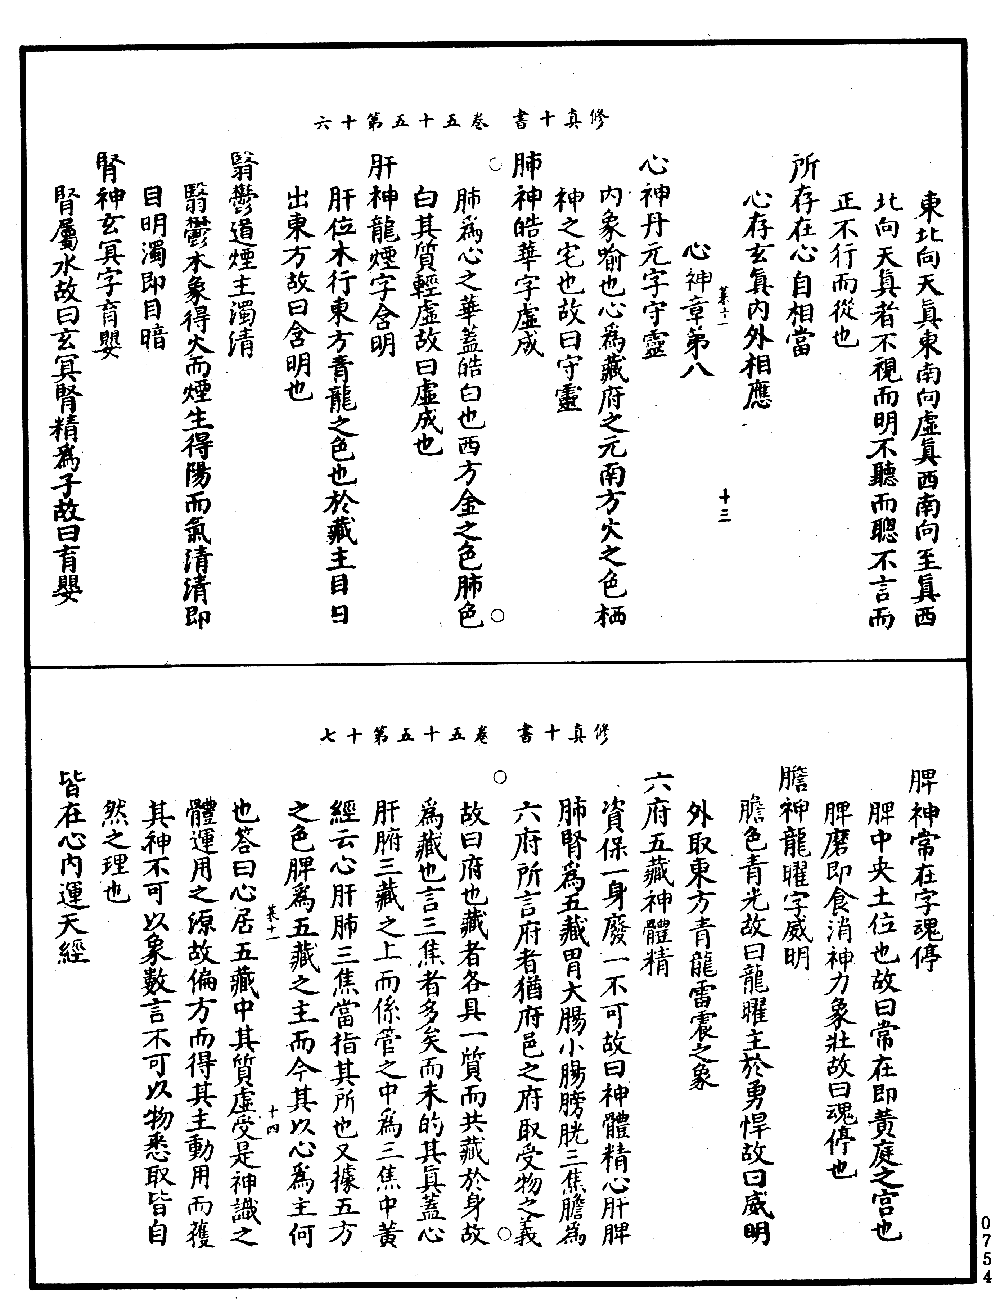 修真十書　卷五十五第十六
東北向天真東南向虛真西南向至真西
北向天真者不視而明不聽而聰不言而
正不行而從也
所存在心自相當
心存玄真內外相應
菜十一　十三
心神章第八
心神丹元字守靈
內象喻也心為藏府之元南方火之色栖
神之宅也故曰守靈
肺神皓華字虛成
肺為心之華蓋皓白也西方金之色肺色
白其質輕虛故曰虛成也
肝神龍煙字含明
肝位木行東方青龍之色也於藏主目日
出東方故曰含明也
翳鬱道煙主濁清
翳鬱木象得火而煙生得陽而氣清清即
目明濁即目暗
腎神玄冥字育嬰
腎屬水故曰玄冥腎精為子故曰育嬰
修真十書　卷五十五第十七
脾神常在字魂停
脾中央土位也故曰常在即黃庭之宮也
脾磨即食消神力象壯故曰魂停也
膽神龍曜字威明
膽色青光故曰龍曜主於勇悍故曰威明
外取東方青龍雷震之象
六府五藏神體精
資保一身廢一不可故曰神體精心肝脾
肺腎為五藏胃大腸小腸膀胱三焦膽為
六府所言府者猶府邑之府取受物之義
故曰府也藏者各具一質而共藏於身故
為藏也言三焦者多矣而未的其真蓋心
肝腑三藏之上而係管之中為三焦中黃
經云心肝肺三焦當指其所也又據五方
之色脾為五藏之主而今其以心為主何
菜十一　十四
也答曰心居五藏中其質虛受是神識之
體運用之源故偏方而得其主動用而獲
其神不可以象數言不可以物悉取皆自
然之理也
皆在心內運天經
0754